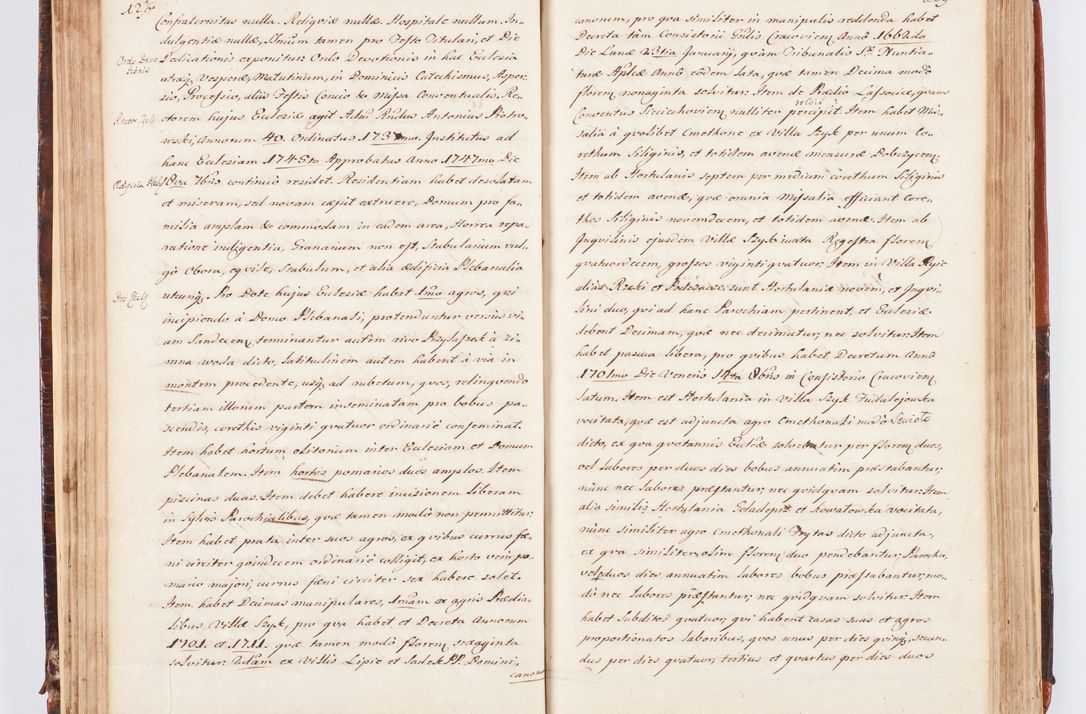 Confraternitas nulla. Religviæ nullæ. Hospitale nullum. In-
dulgentiæ nullæ, Smum tamen pro Festo Titulari, et Die
Dedicationis exponitur. Ordo Devotionis in hac Ecclesia
utræq. Vesperæ, Matutinum, in Dominicis Catechismus, Asper-
sio, Processio, aliis Festis Concio & Missa Conventualis. Re-
ctorem hujus Ecclesiæ agit Admi Rndus Antonius Piotro-
wski, Annorum 40. Ordinatus Institutus ad
hanc Ecclesiam 1745to Approbatus Anno 1747mo Die
18va 7bris continuo residet. Residentiam habet desolatam
et miseram, sed novam cæpit extruere, Domum pro fa-
milia amplam & commodam, in eadem area, Horrea repa-
ratione indigentia, Granarium non est, Stabularium vul-
go Obora, eqvile, Stabulum, et alia ædificia Plebanalia
utcunq. Pro Dote hujus Ecclesiæ habet Imo agros, qvi
incipiendo à Domo Plebanali, protenduntur versus vi-
am Sandecen, terminantur autem rivo Przylasek à zi-
mna woda dicto, latitudinem autem habent à via in
montem procedente, usq. ad rubetum, qvos, relinqvendo
tertiam illorum partem inseminatam pro bobus pa-
scendis, corethis viginti qvatuor ordinarie conseminat.
Item habet hortum olitorium inter Ecclesiam et Domum
Plebanalem. Item hortos pomarios duos amplos. Item
piscinas duas. Item debet habere incisionem liberam
in Sylvis Parochialibus, qvæ tamen modo non permittitur.
Item habet prata inter suos agros, ex qvibus currus fæ-
ni circiter qvindecem ordinarie colligit, ex horto vero po-
mario majori, currus fæni circiter sex habere solet.
Item habet Decimas manipulares, Imam ex agris Prædia-
libus Villæ Szyk, pro qva habet et Decreta Annorum
1701. et 1711. qvæ tamen modo floren, sexaginta
solvitur. 2dam ex Villis Lipie et Sadek PP. Domini-
canonum, pro qva similiter in manipulis reddenda habet
Decreta tam Consistorii Gnlis Cracovien, Anno 1662do
Die Lunæ 23tia Januarij, qvam Tribunalis Sæ Nuntia-
turæ Aplicæ Anno eodem lata, qvæ tamen Decima modo
floren, nonaginta solvitur. Item de Prædio Lassowice, qvam
Conventus Sieciechovien, nulliter percipit. Item habet Mis-
salia à qvolibet Cmethone ex Villa Szyk per unum Co-
rethum Siliginis, et totidem avenæ mensuræ Dobczycen,
Item ab Hortulanis septem per medium corethum Siliginis
et totidem avenæ, qvæ omnia Missalia efficiunt Core-
thos Siliginis novemdecem, et totidem avenæ. Item ab
Inqvilinis ejusdem Villæ Szyk juxta Regestra floren,
qvatuordecem, grossos viginti qvatuor. Item in Villa Rysie
aliis Rzeki et sunt Hortulaniæ novem, et Inqvi-
lini duo, qvi ad hanc Parochiam pertinent, et Ecclesiæ
debent Decimam, qvæ nec decimatur, nec solvitur. Item
habet pascua libera, pro qvibus habet Decretum Anno
1701mo Die Veneris 14ta 8bris in Consistorio Cracovien,
latum. Item est Hortulania in Villa Szyk Fudalejowska
vocitata, qvæ est adjuncta agro Cmethonali modo
dicto, ex qva qvotannis Ecclæ solvebatur per floren, duos,
vel labores per duos dies bobus annuatim præstabantur,
nunc nec labores præstantur, nec qvidqvam solvitur. Item
alia similis Hortulania et Kowalowska vocitata,
nunc similiter agro Cmethonali Frytas dicto adjuncta,
ex qva similiter, olim floren, duo pendebantur, Parocho,
vel duos dies annuatim labores bobus præstabantur, mo-
do nec labores præstantur, nec qvidqvam solvitur. Item
habet Subditos qvatuor, qvi habent casas suas et agros
proportionatos laboribus, qvos unus per dies qvinq. secun-
dus per dies qvatuor, tertius et qvartus per dies duos